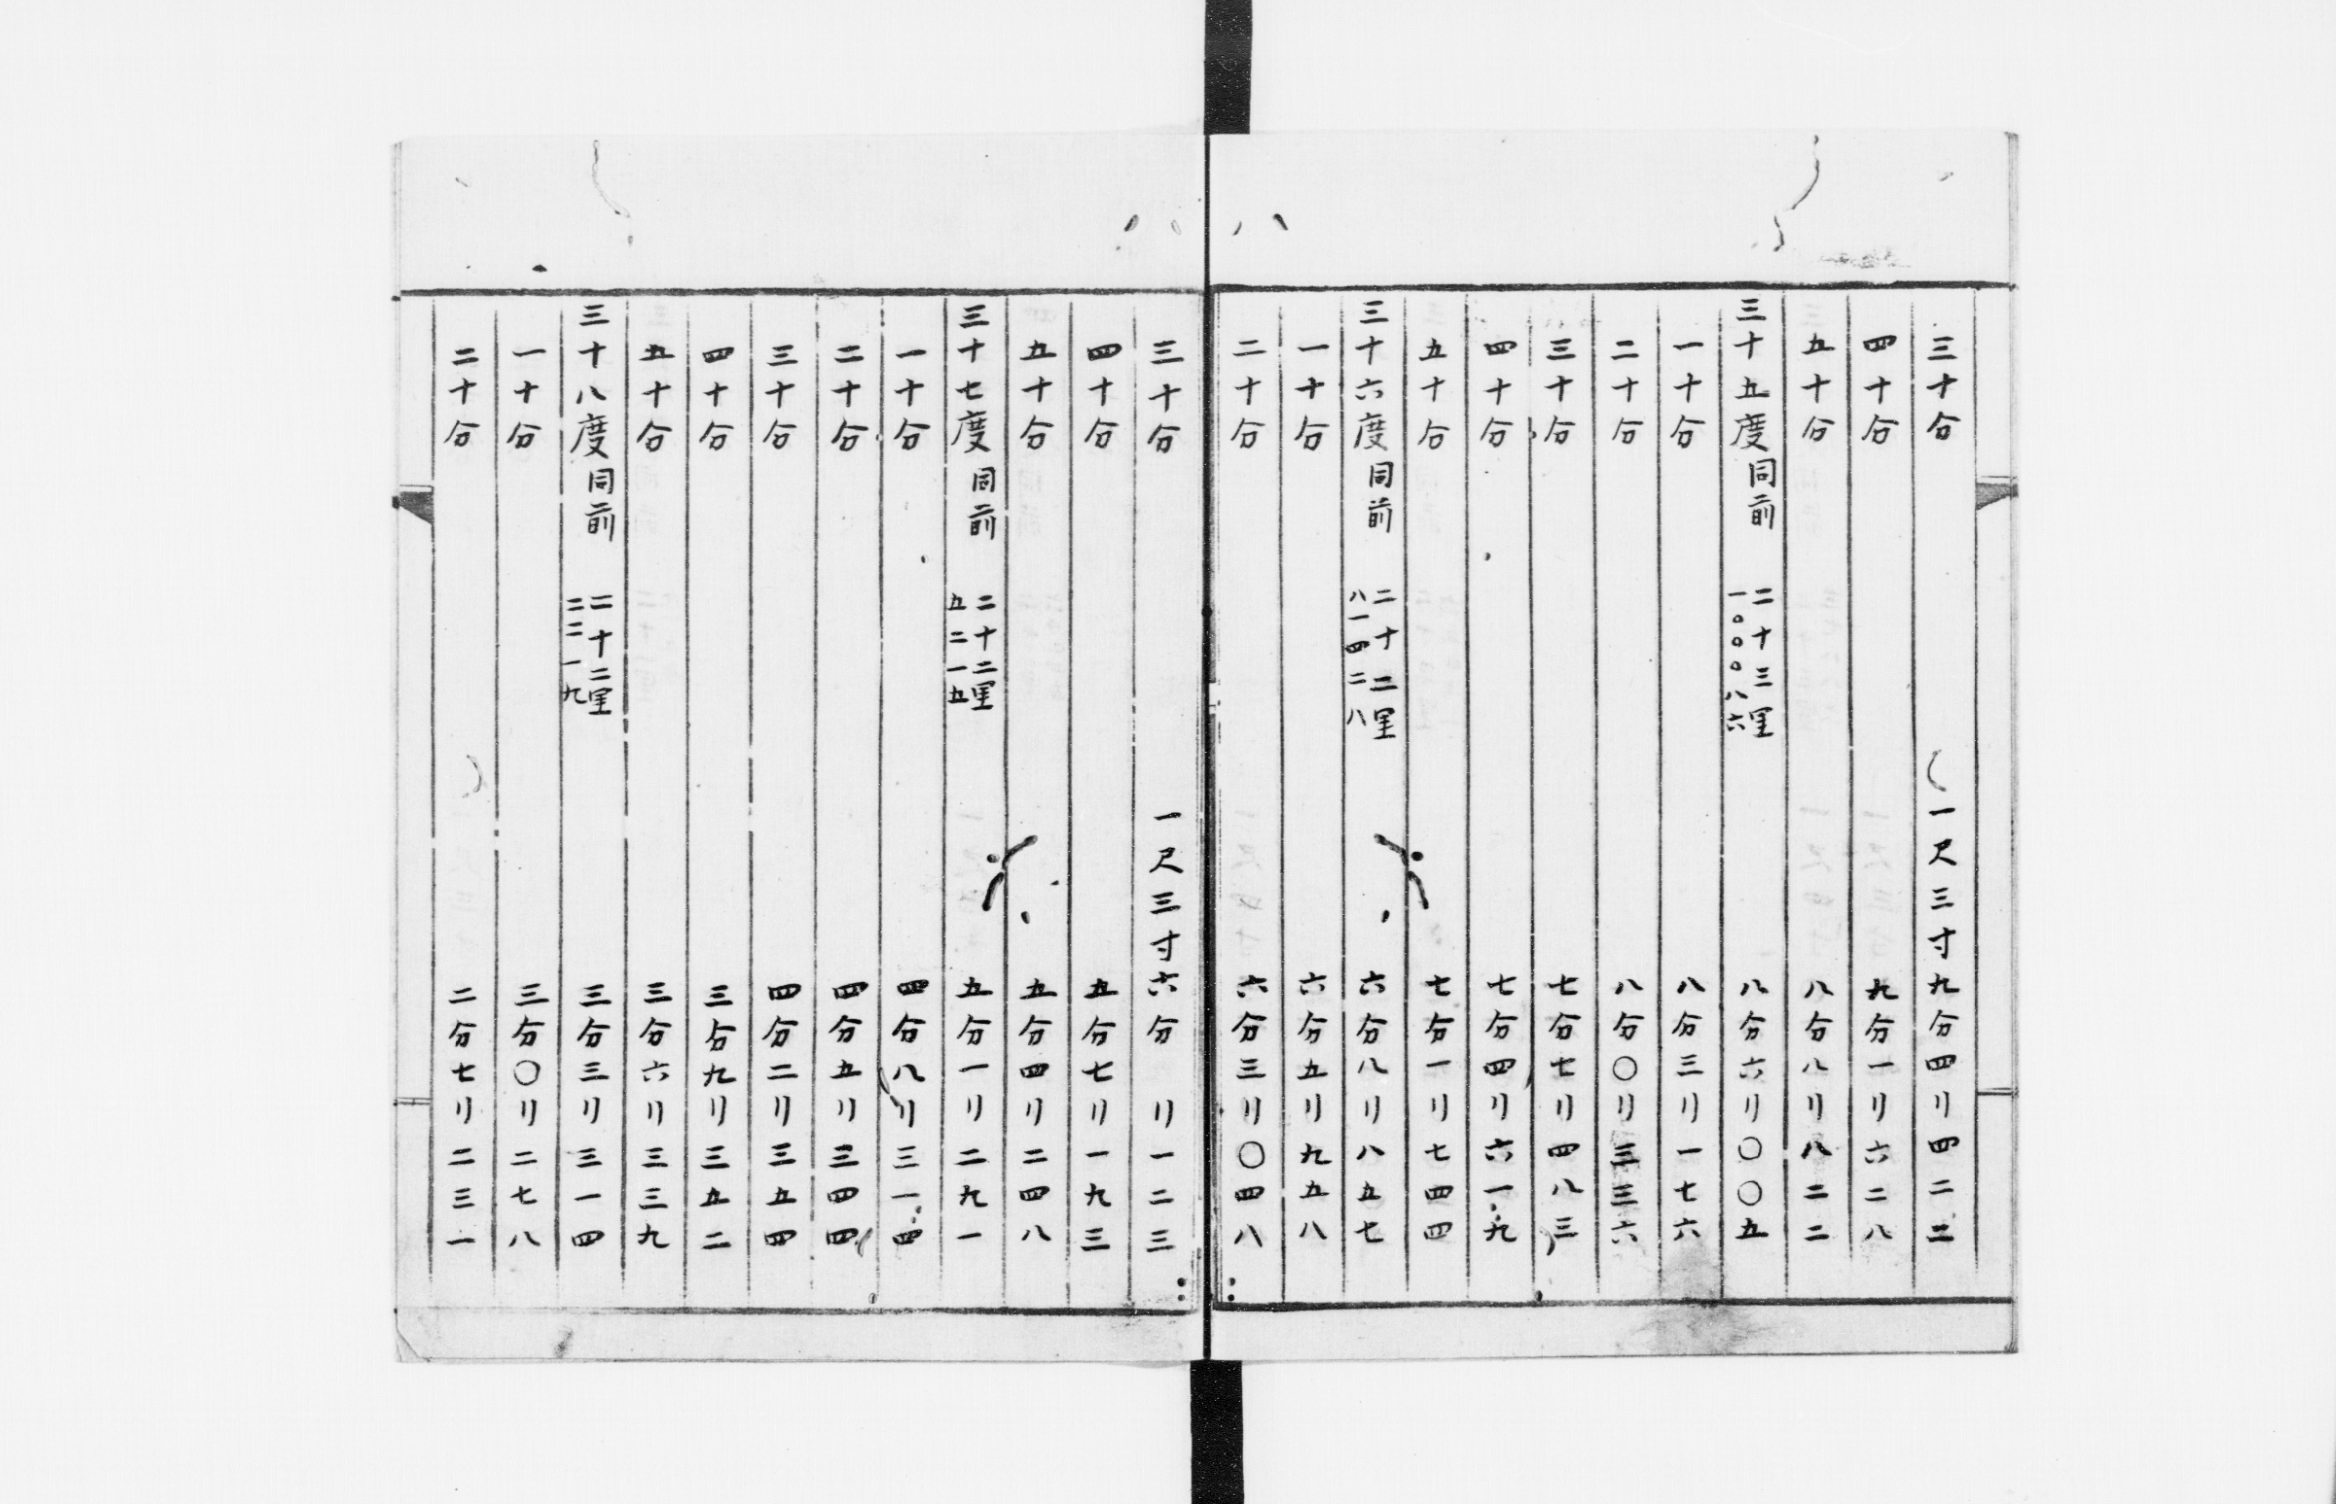 三十分　一尺三寸九分四リ四二二
四十分　九分一リ六二八
五十分　八分八リ八二二
三十五度同前　二十三里一〇〇〇八六　八分六リ〇〇五
一十分　八分三リ一七六
二十分　八分〇リ三三六
三十分　七分七リ四八三
四十分　七分四リ六一九
五十分　七分一リ七四四
三十六度同前　二十二里八一四二八　六分八リ八五七
一十分　六分五リ九五八
二十分　六分三リ〇四八
三十分　一尺三寸六分　リ一二三
四十分　五分七リ一九三
五十分　五分四リ二四八
三十七度同前　二十二里五二一五　五分一リ二九一
一十分　四分八リ三一四
二十分　四分五リ三四四
三十分　四分二リ三五四
四十分　三分九リ三五二
五十分　三分六リ三三九
三十八度同前　二十二里二二一九　三分三リ三一四
一十分　三分〇リ二七八
二十分　二分七リ二三一